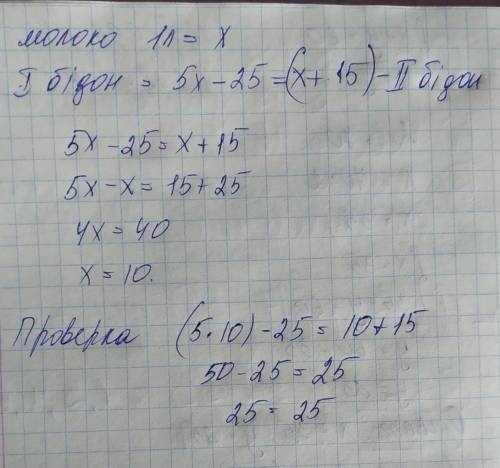 молоко 1л = х
I бідон = 5х - 25 = (х + 15) - II бідон
5х - 25 = х + 15
5х - х = 15 + 25
4х = 40
х = 10.
Проверка (5 · 10) - 25 = 10 + 15
50 - 25 = 25
25 = 25